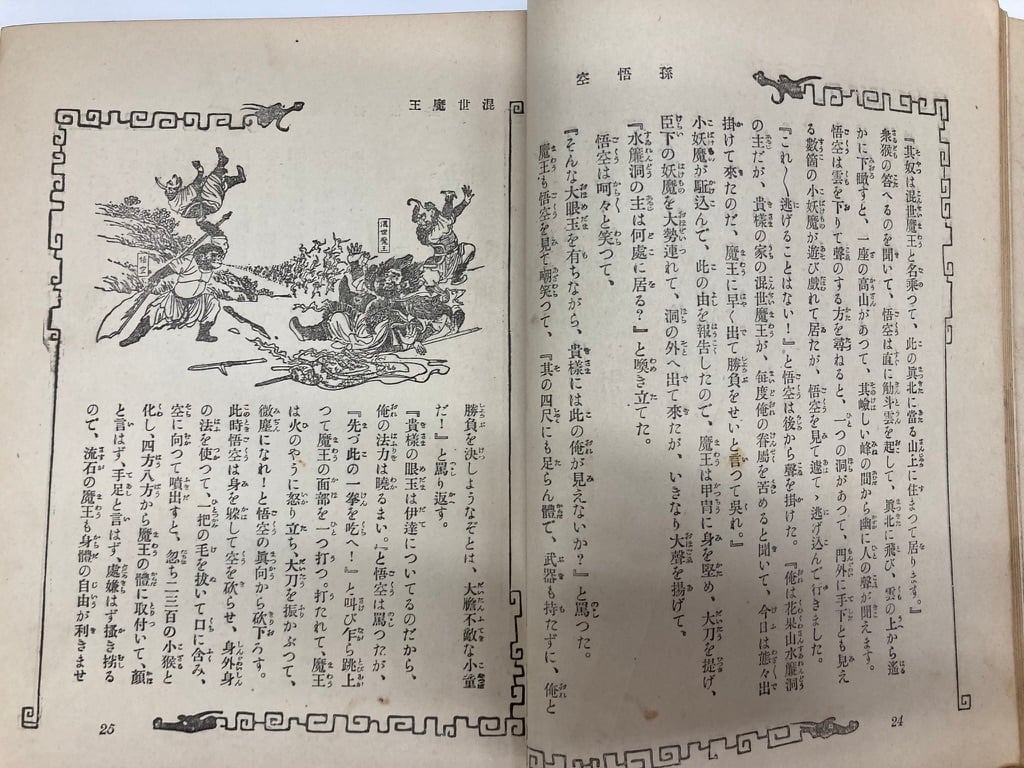 孫悟空
『其奴は混世魔王と名乘つて、此の眞北に當る山上に住まつて居ります。』
衆猴の答へるのを聞いて、悟空は直に觔斗雲を起して、眞北に飛び、雲の上から遙
かに下瞰すと、一座の高山があつて、其嶮しい峰の間から幽に人の聲が聞えます。
悟空は雲を下りて聲のする方を尋ねると、一つの洞があつて、門外に手下とも見え
る數箇の小妖魔が遊び戯れて居たが、悟空を見て遽てゝ逃げ込んで行きました。
『これ〳〵逃げることはない！』と悟空は後から聲を掛けた。『俺は花果山水簾洞
の主だが、貴樣の家の混世魔王が、毎度俺の眷屬を苦めると聞いて、今日は態々出
掛けて來たのだ、魔王に早く出て勝負をせいと言つて吳れ。』
小妖魔が駈込んで、此の由を報告したので、魔王は甲冑に身を堅め、大刀を提げ、
臣下の妖魔を大勢連れて、洞の外へ出て來たが、いきなり大聲を揚げて、
『水簾洞の主は何處に居る？』と喚き立てた。
悟空は呵々と笑つて、
『そんな大眼玉を有ちながら、貴樣には此の俺が見えないか？』と罵つた。
魔王も悟空を見て嘲笑つて、『其の四尺にも足らん體で、武器も持たずに、俺と
24
混世魔王
混世魔王
悟空
勝負を決しようなぞとは、大膽不敵な小童
だ！』と罵り返す。
『貴樣の眼玉は伊達についてるのだから、
俺の法力は曉るまい。』と悟空は罵つたが、
『先づ此の一拳を吃へ！』と叫び乍ら跳上
つて魔王の面部を一つ打つ。打たれて、魔王
は火のやうに怒り立ち、大刀を振かぶつて、
微塵になれ！と悟空の眞向から砍下ろす。
此時悟空は身を躱して空を砍らせ、身外身
の法を使つて、一把の毛を拔いて口に含み、
空に向つて噴出すと、忽ち二三百の小猴と
化し、四方八方から魔王の體に取付いて、顏
と言はず、手足と言はず、處嫌はず搔き拶る
ので、流石の魔王も身體の自由が利きませ
25